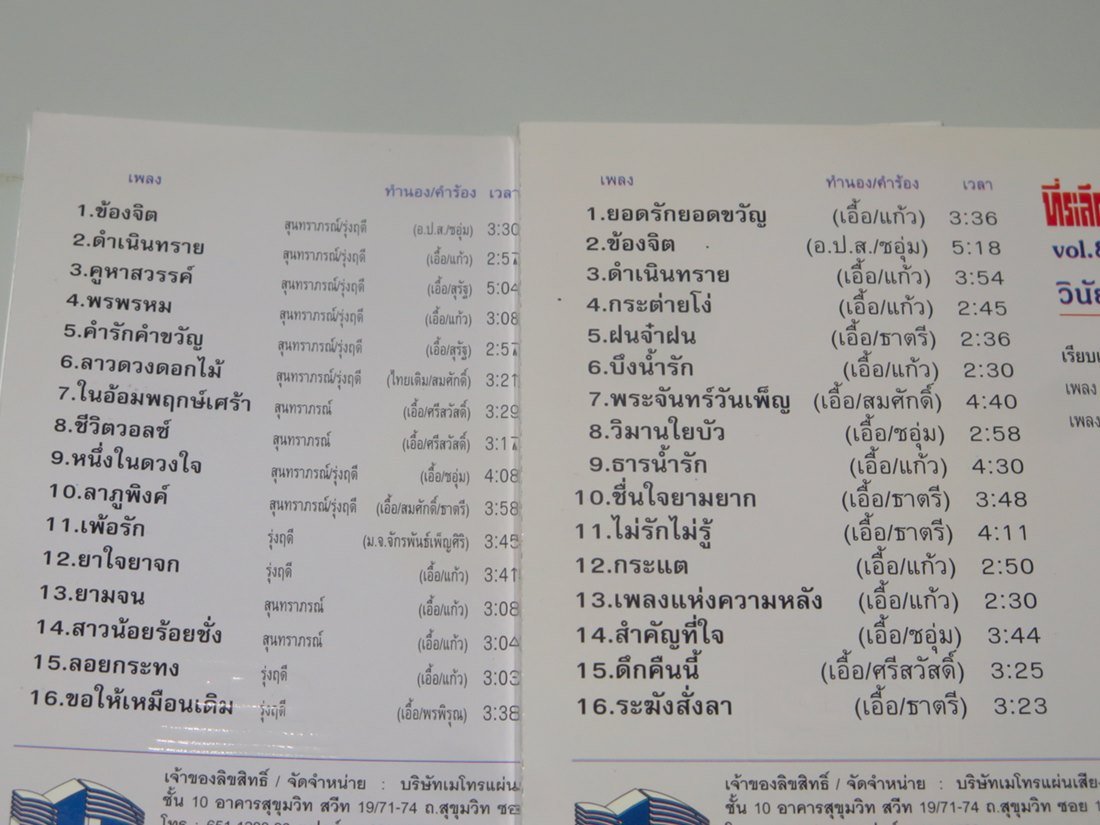 เพลง ทำนอง/คำร้อง เวลา
1.ข้องจิต สุนทราภรณ์/รุ่งฤดี (อ.ป.ส./ชอุ่ม) 3:30
2.ดำเนินทราย สุนทราภรณ์/รุ่งฤดี (เอื้อ/แก้ว) 2:57
3.คูหาสวรรค์ สุนทราภรณ์/รุ่งฤดี (เอื้อ/สุรัฐ) 5:04
4.พรพรหม สุนทราภรณ์/รุ่งฤดี (เอื้อ/แก้ว) 3:08
5.คำรักคำขวัญ สุนทราภรณ์/รุ่งฤดี (เอื้อ/สุรัฐ) 2:57
6.ลาวดวงดอกไม้ สุนทราภรณ์/รุ่งฤดี (ไทยเดิม/สมศักดิ์) 3:21
7.ในอ้อมพฤกษ์เศร้า สุนทราภรณ์ (เอื้อ/ศรีสวัสดิ์) 3:29
8.ชีวิตวอลซ์ สุนทราภรณ์ (เอื้อ/ศรีสวัสดิ์) 3:17
9.หนึ่งในดวงใจ สุนทราภรณ์/รุ่งฤดี (เอื้อ/ชอุ่ม) 4:08
10.ลาภูพิงค์ สุนทราภรณ์/รุ่งฤดี (เอื้อ/สมศักดิ์/ธาตรี) 3:58
11.เพ้อรัก รุ่งฤดี (ม.จ.จักรพันธ์เพ็ญศิริ) 3:45
12.ยาใจยาจก รุ่งฤดี (เอื้อ/แก้ว) 3:41
13.ยามจน สุนทราภรณ์ (เอื้อ/แก้ว) 3:08
14.สาวน้อยร้อยชั่ง สุนทราภรณ์ (เอื้อ/แก้ว) 3:04
15.ลอยกระทง รุ่งฤดี (เอื้อ/แก้ว) 3:03
16.ขอให้เหมือนเดิม รุ่งฤดี (เอื้อ/พรพิรุณ) 3:38
เจ้าของลิขสิทธิ์ / จัดจำหน่าย : บริษัทเมโทรแผ่น
ชั้น 10 อาคารสุขุมวิท สวีท 19/71-74 ถ.สุขุมวิท ซอย
เพลง ทำนอง/คำร้อง เวลา
1.ยอดรักยอดขวัญ (เอื้อ/แก้ว) 3:36
2.ข้องจิต (อ.ป.ส./ชอุ่ม) 5:18
3.ดำเนินทราย (เอื้อ/แก้ว) 3:54
4.กระต่ายโง่ (เอื้อ/แก้ว) 2:45
5.ฝนจ๋าฝน (เอื้อ/ธาตรี) 2:36
6.บึงน้ำรัก (เอื้อ/แก้ว) 2:30
7.พระจันทร์วันเพ็ญ (เอื้อ/สมศักดิ์) 4:40
8.วิมานใยบัว (เอื้อ/ชอุ่ม) 2:58
9.ธารน้ำรัก (เอื้อ/แก้ว) 4:30
10.ชื่นใจยามยาก (เอื้อ/ธาตรี) 3:48
11.ไม่รักไม่รู้ (เอื้อ/ธาตรี) 4:11
12.กระแต (เอื้อ/แก้ว) 2:50
13.เพลงแห่งความหลัง (เอื้อ/แก้ว) 2:30
14.สำคัญที่ใจ (เอื้อ/ชอุ่ม) 3:44
15.ดึกคืนนี้ (เอื้อ/ศรีสวัสดิ์) 3:25
16.ระฆังสั่งลา (เอื้อ/ธาตรี) 3:23
เจ้าของลิขสิทธิ์ / จัดจำหน่าย : บริษัทเมโทรแผ่นเสียง
ชั้น 10 อาคารสุขุมวิท สวีท 19/71-74 ถ.สุขุมวิท ซอย 1
ที่ระลึก
vol.8
วินัย
เรียบเ
เพลง
เพลง